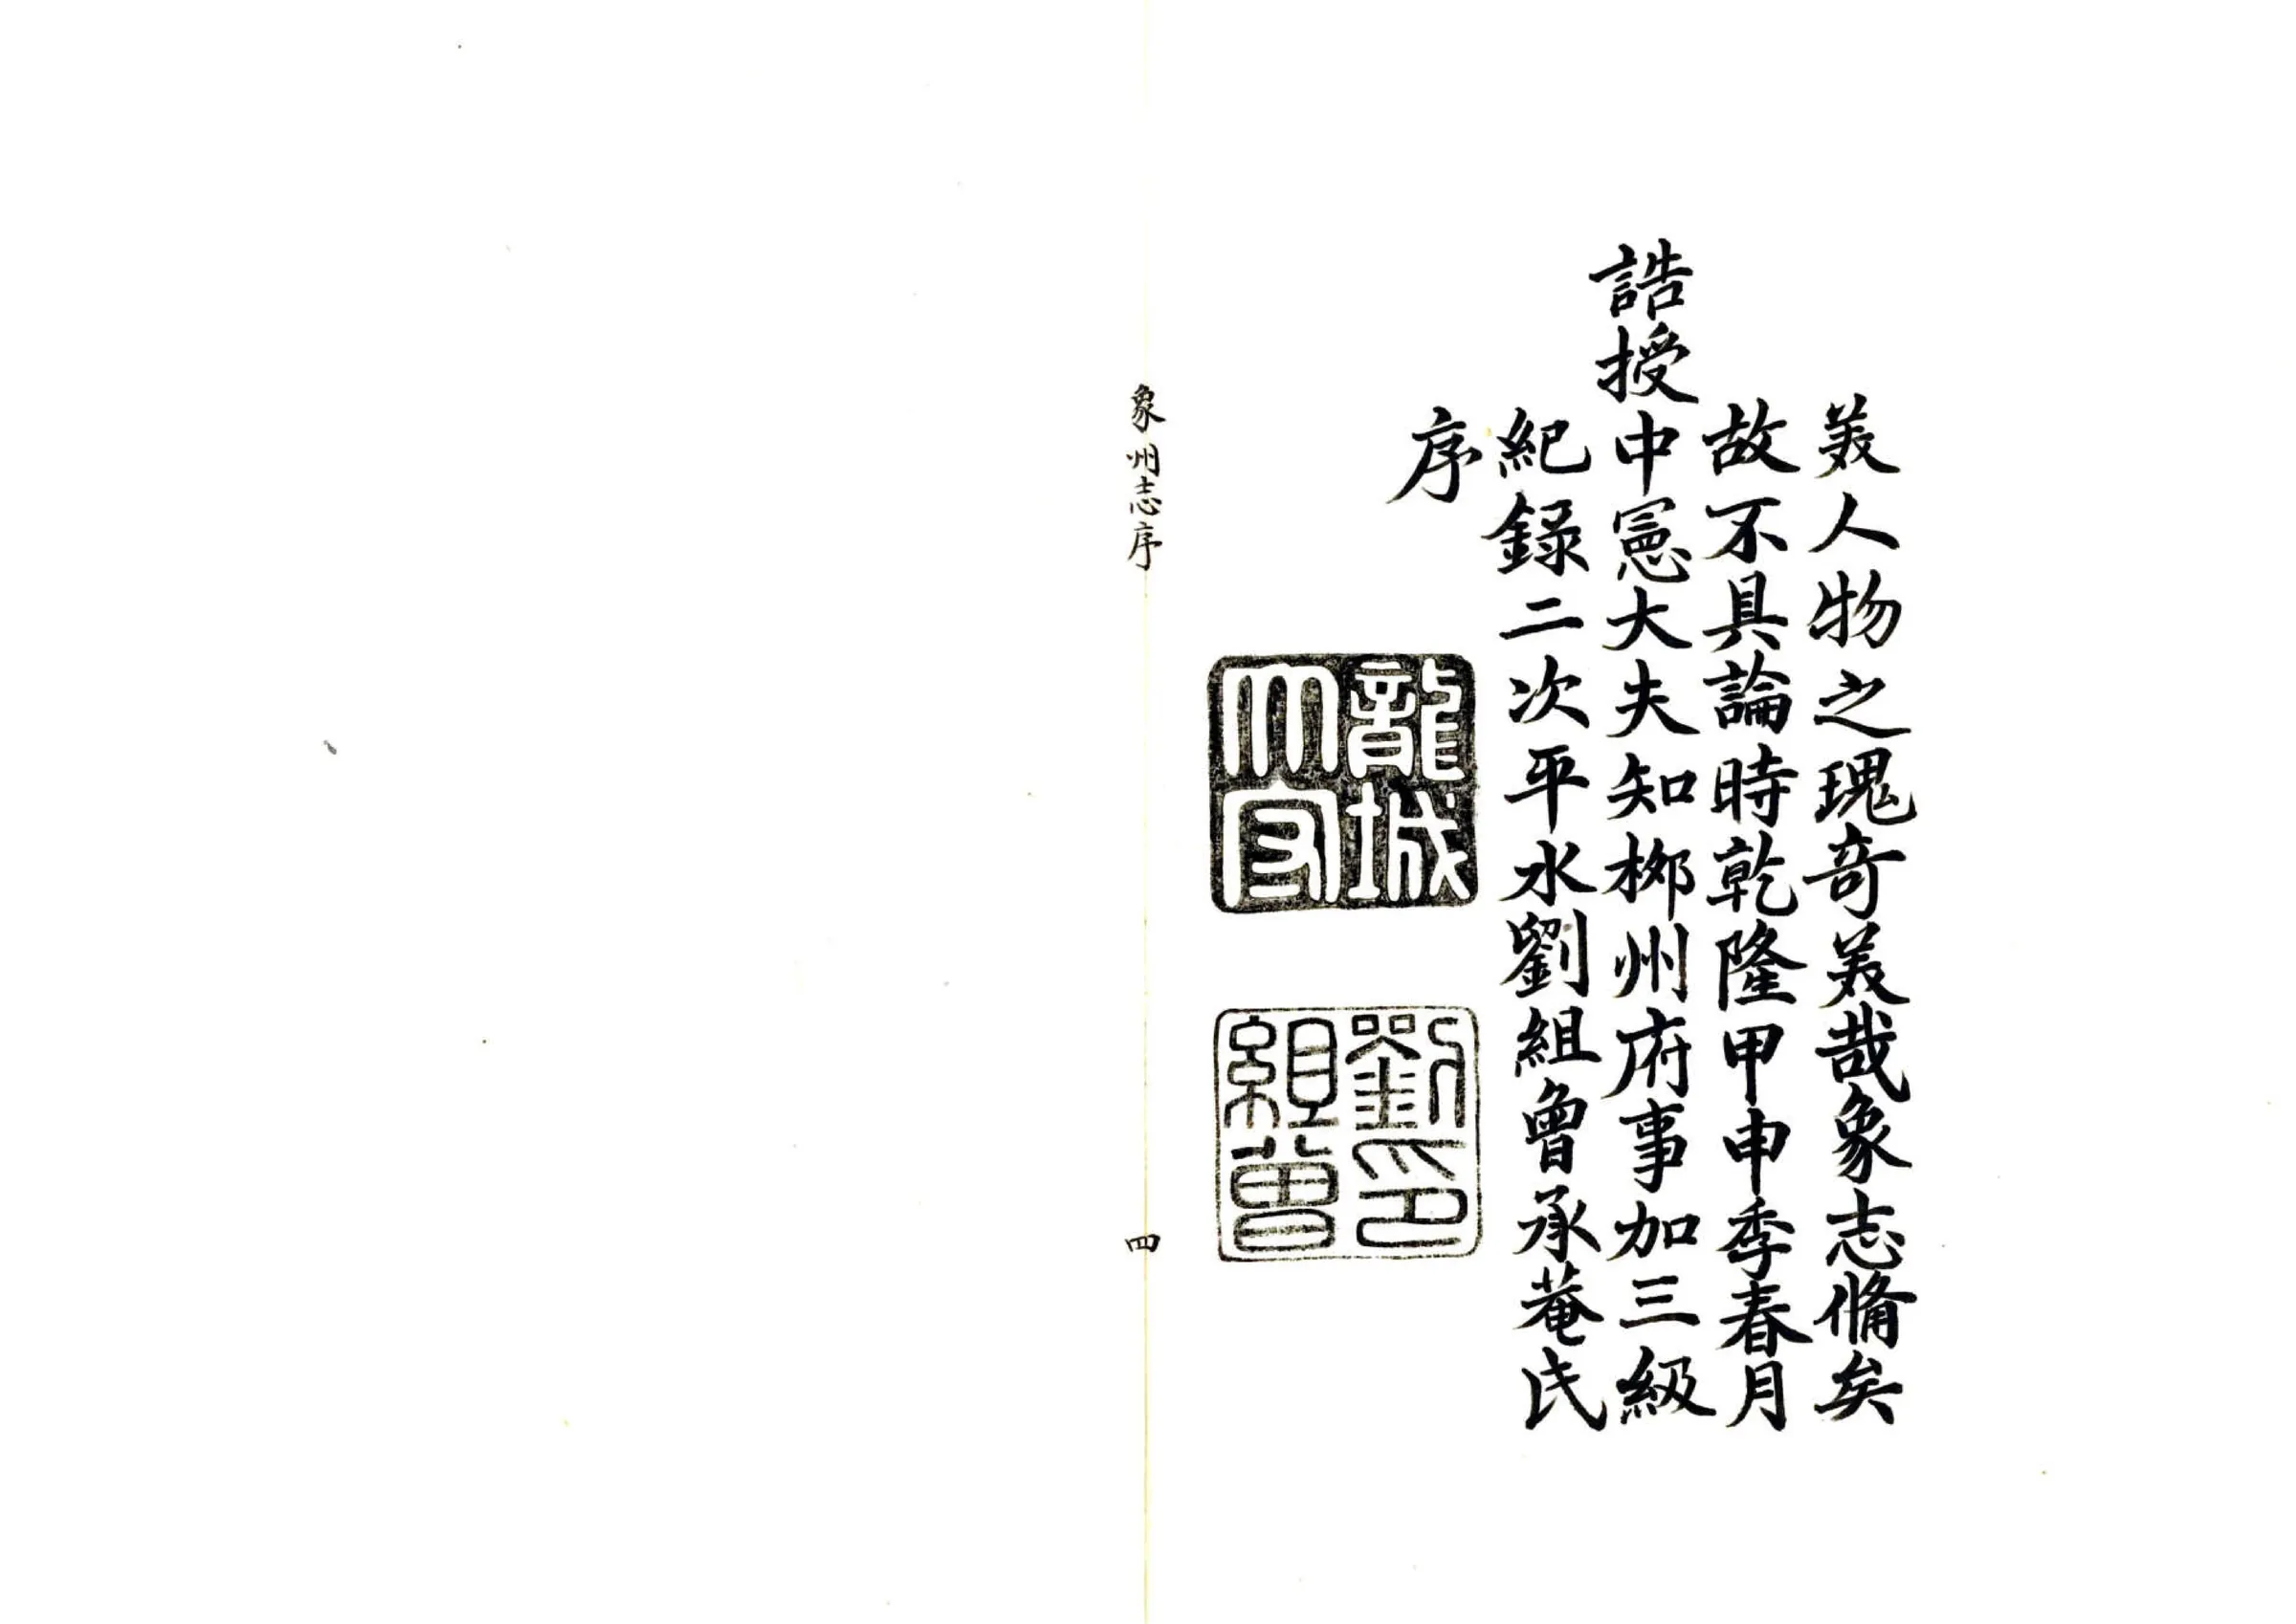 美人物之瑰竒美哉象志偹矣
故不具論時乾隆甲申季春月
誥授中憲大夫知栁州府事加三級
紀錄二次平水劉組曾承菴氏
序
龍城
劉印
組曾
象州志序
四